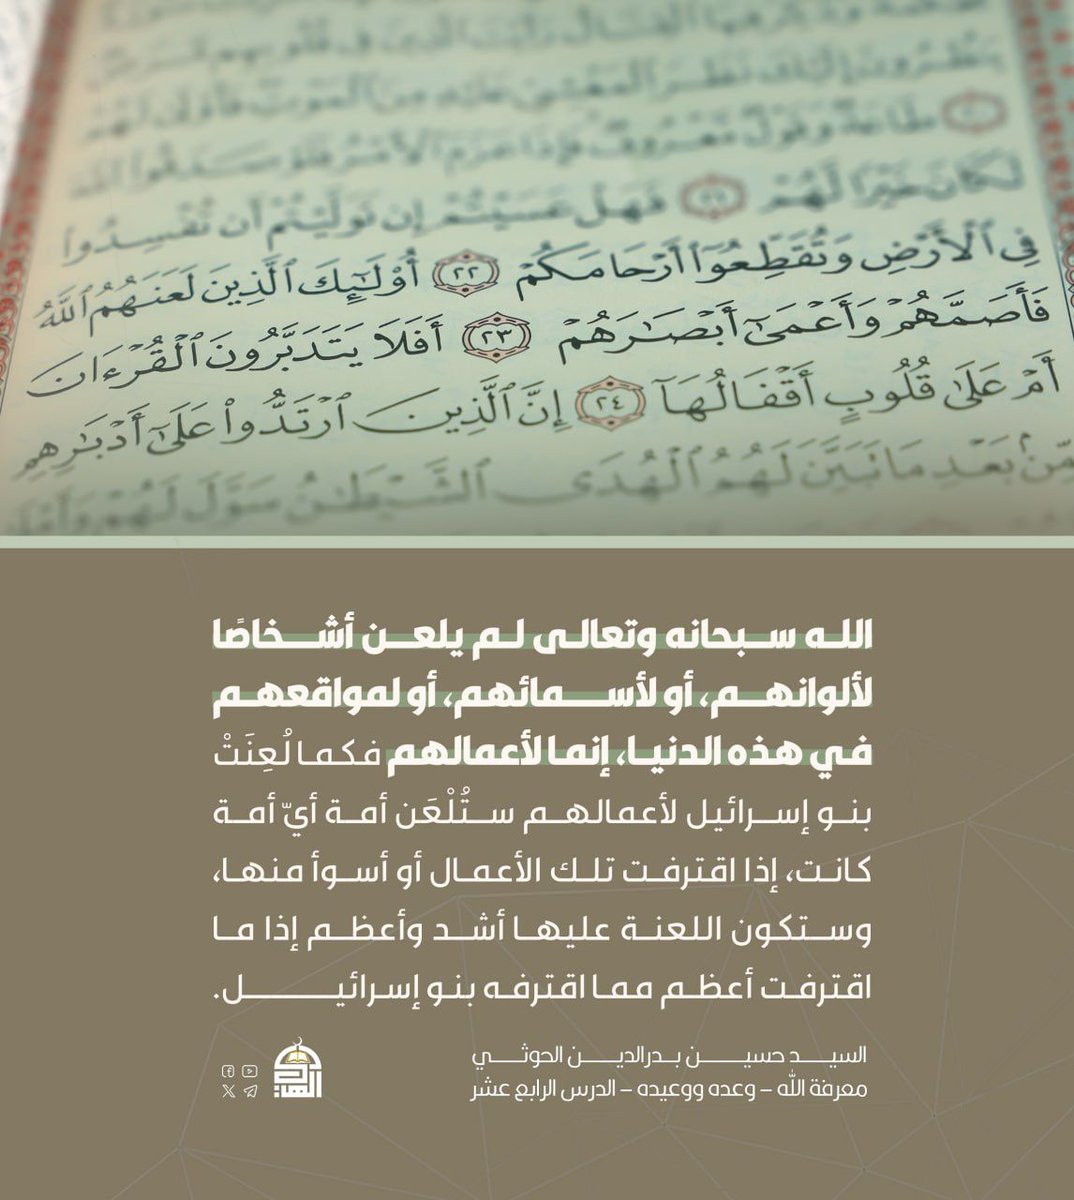 طَاعَةٌ وَقَوْلٌ مَّعْرُوفٌ فَإِذَا عَزَمَ ٱلْأَمْرُ فَلَوْ صَدَقُوا۟ ٱللَّهَ
لَكَانَ خَيْرًا لَّهُمْ ٢١ فَهَلْ عَسَيْتُمْ إِن تَوَلَّيْتُمْ أَن تُفْسِدُوا۟
فِي ٱلْأَرْضِ وَتُقَطِّعُوٓا۟ أَرْحَامَكُمْ ٢٢ أُو۟لَٰٓئِكَ ٱلَّذِينَ لَعَنَهُمُ ٱللَّهُ
فَأَصَمَّهُمْ وَأَعْمَىٰٓ أَبْصَٰرَهُمْ ٢٣ أَفَلَا يَتَدَبَّرُونَ ٱلْقُرْءَانَ
أَمْ عَلَىٰ قُلُوبٍ أَقْفَالُهَآ ٢٤ إِنَّ ٱلَّذِينَ ٱرْتَدُّوا۟ عَلَىٰٓ أَدْبَٰرِهِم
مِّنۢ بَعْدِ مَا تَبَيَّنَ لَهُمُ ٱلْهُدَى ٱلشَّيْطَٰنُ سَوَّلَ لَهُمْ
الله سبحانه وتعالى لم يلعن أشخاصًا
لألوانهم، أو لأسمائهم، أو لمواقعهم
في هذه الدنيا، إنما لأعمالهم فكما لُعِنَتْ
بنو إسرائيل لأعمالهم ستُلْعَن أمة أيّ أمة
كانت، إذا اقترفت تلك الأعمال أو أسوأ منها،
وستكون اللعنة عليها أشد وأعظم إذا ما
اقترفت أعظم مما اقترفه بنو إسرائيل.
السيد حسين بدرالدين الحوثي
معرفة الله – وعده ووعيده – الدرس الرابع عشر